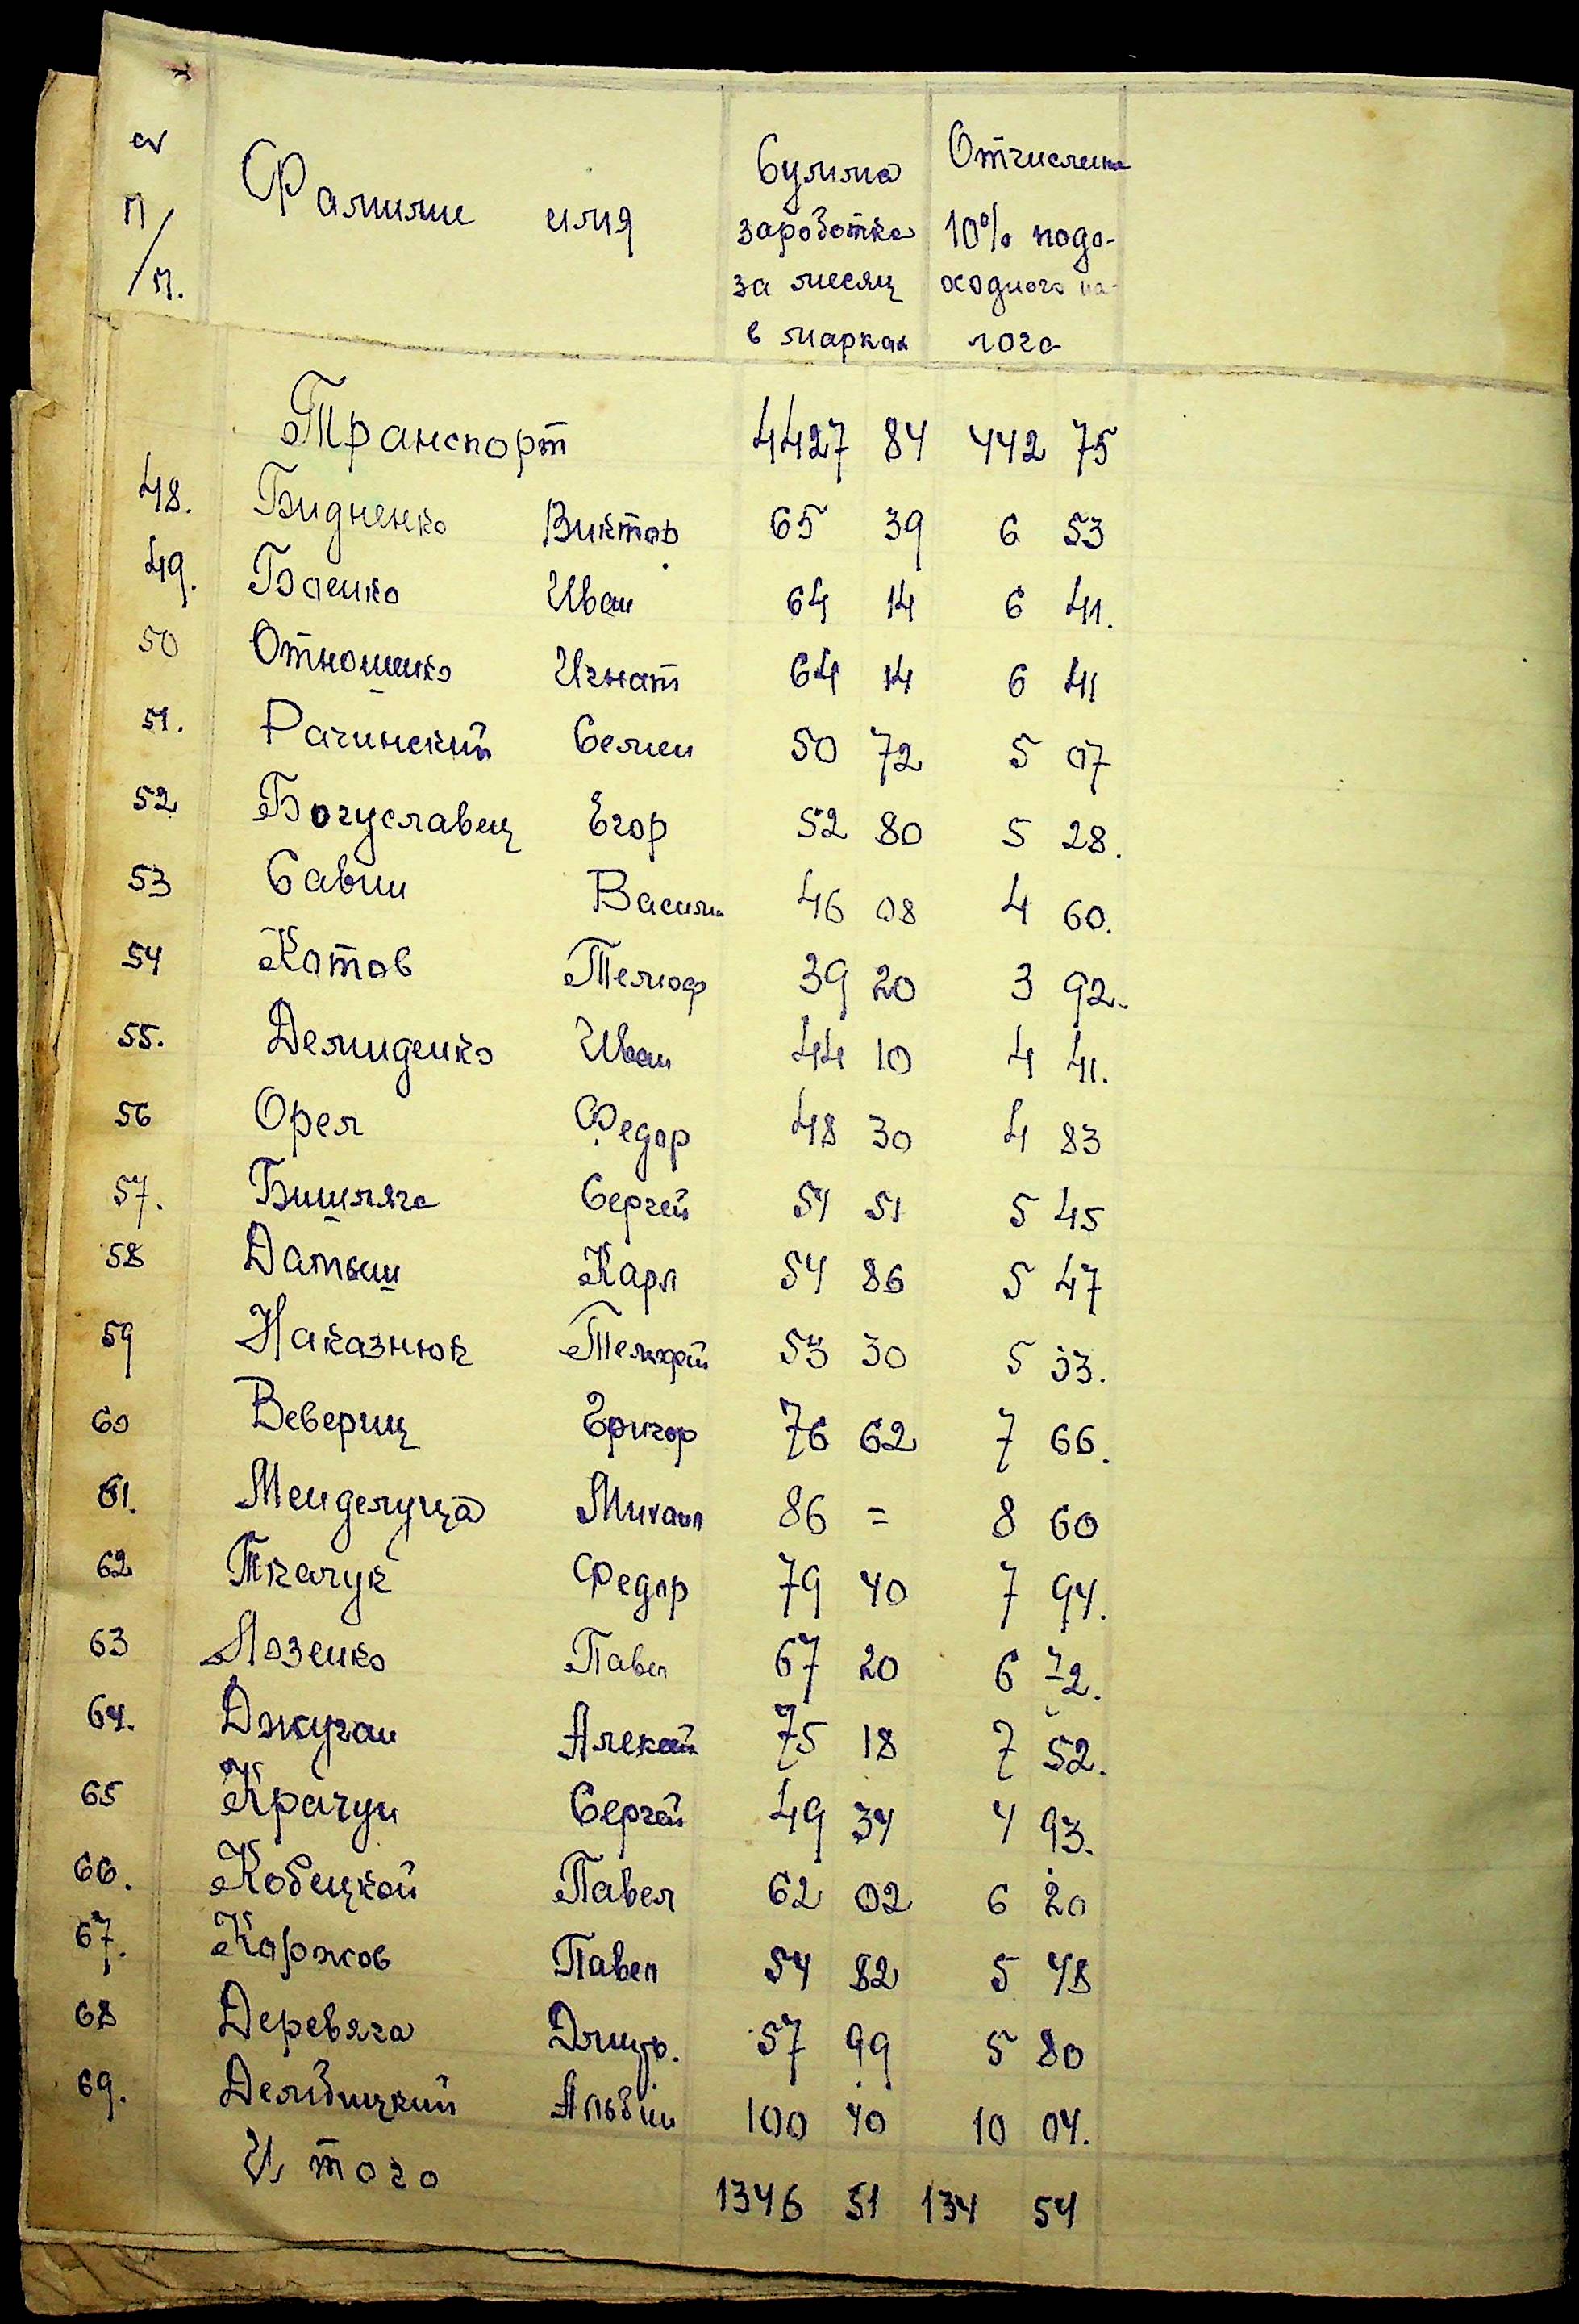 № п/п. Фамилие имя Сумма заработка за месяц в марках Отчисление 10% подо-оходного на-лога
Транспорт 4427 84 442 75
48. Бидненко Виктор 65 39 6 53
49. Баенко Иван 64 14 6 41.
50 Отношенко Игнат 64 14 6 41
51. Рачинский Семен 50 72 5 07
52 Богуславец Егор 52 80 5 28.
53 Савин Василий 46 08 4 60.
54 Котов 39 20 3 92.
55. Демиденко Иван 44 10 4 41.
56 Орел Федор 48 30 4 83
57. Бишляга Сергей 54 51 5 45
58 Датыш Карп 54 86 5 47
59 Наказнюк 53 30 5 33.
60 Вевериц Григор 76 62 7 66.
61. Менделуца Михаил 86 = 8 60
62 Ткачук Федор 79 40 7 94.
63 Лозенко Павел 67 20 6 72.
64. Джуган Алексей 75 18 7 52.
65 Крачун Сергей 49 34 4 93.
66. Кобецкой Павел 62 02 6 20
67. Коржов Павел 54 82 5 48
68 Деревяга Дмитр. 57 99 5 80
69. Делибицкий Альбин 100 40 10 04.
И того 1346 51 134 54